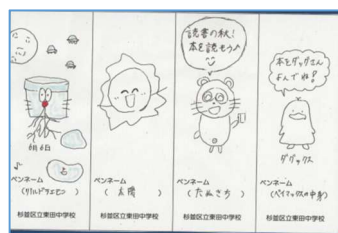 6月6日
ペンネーム
杉並区立東田中学校
ペンネーム
(太陽)
杉並区立東田中学校
読書の秋!
本を読もう
ペンネーム
(たぬきち)
杉並区立東田中学校
本をダックさん
よんでね!
ダックス
ペンネーム
(ベイマックスの中身)
杉並区立東田中学校